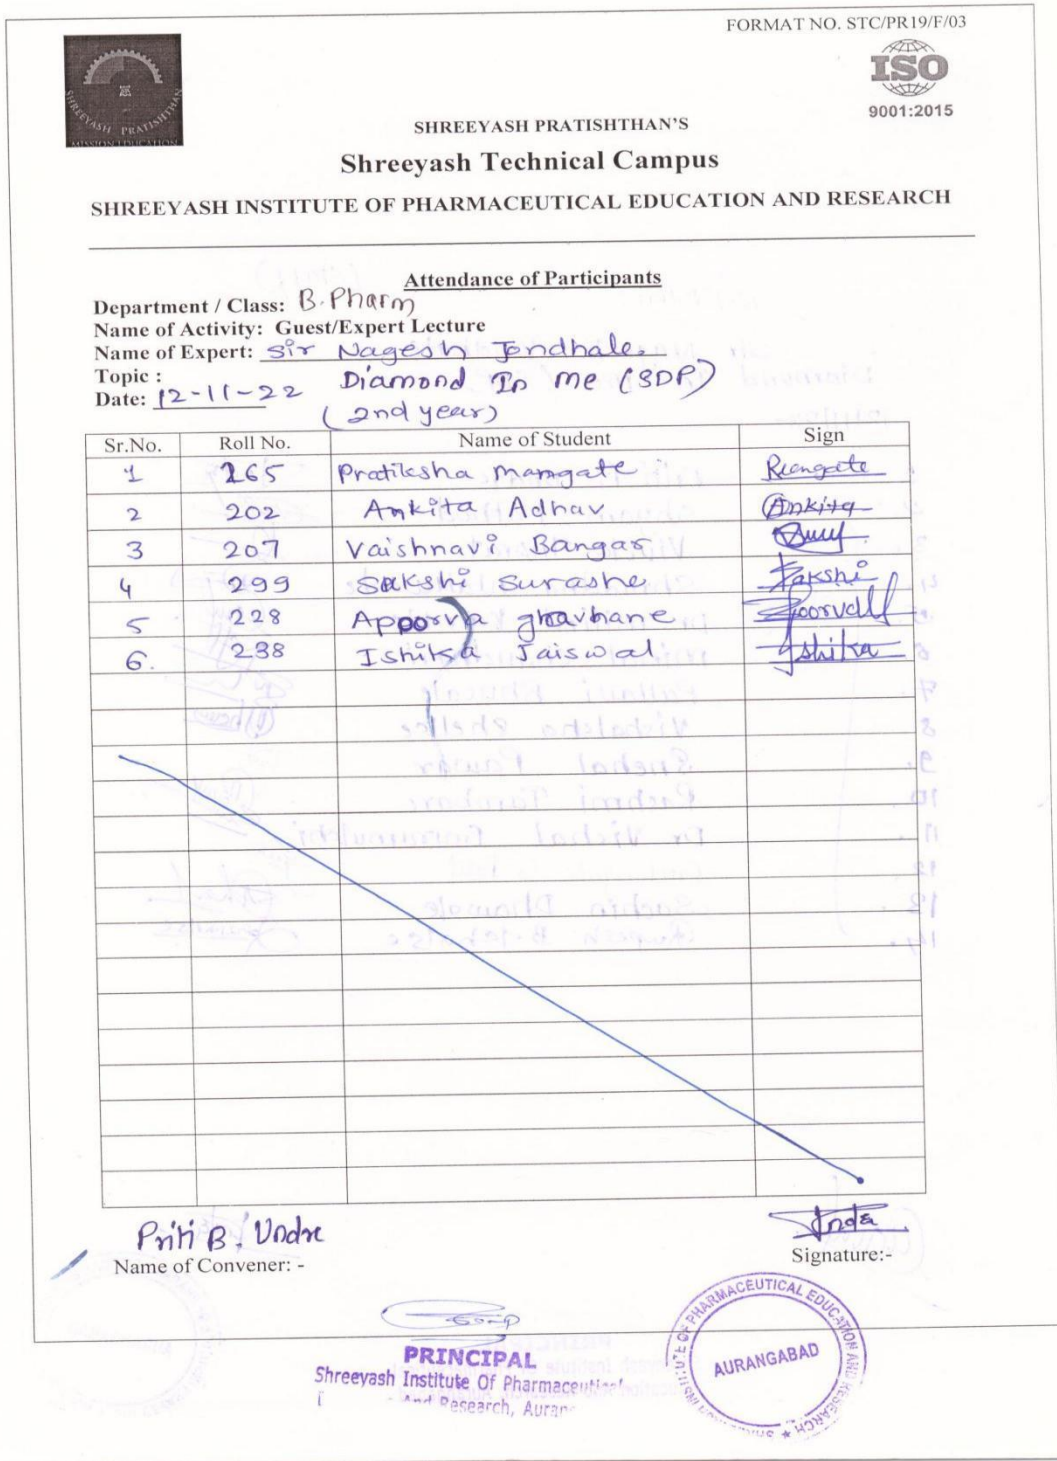 FORMAT NO. STC/PR19/F/03
SHREEYASH PRATISHTHAN
MISSION EDUCATION
ISO
9001:2015
SHREEYASH PRATISHTHAN'S
Shreeyash Technical Campus
SHREEYASH INSTITUTE OF PHARMACEUTICAL EDUCATION AND RESEARCH
Attendance of Participants
Department / Class: B.Pharm
Name of Activity: Guest/Expert Lecture
Name of Expert: Sir Nagesh Jondhale.
Topic : Diamond In me (SDP)
Date: 12-11-22
(2nd year)
Sr.No. Roll No. Name of Student Sign
1 265 Pratiksha Mangate
2 202 Ankita Adhav Ankita
3 207 Vaishnavi Bangar
4 299 Sakshi Surashe Sakshi
5 228 Apoorva ghavhane
6. 238 Ishika Jaiswal Ishika
Priti B. Undre
Name of Convener: - Signature:-
PRINCIPAL
Shreeyash Institute Of Pharmaceutical
And Research, Auran
OF PHARMACEUTICAL EDUCATION AND RESEARCH
AURANGABAD